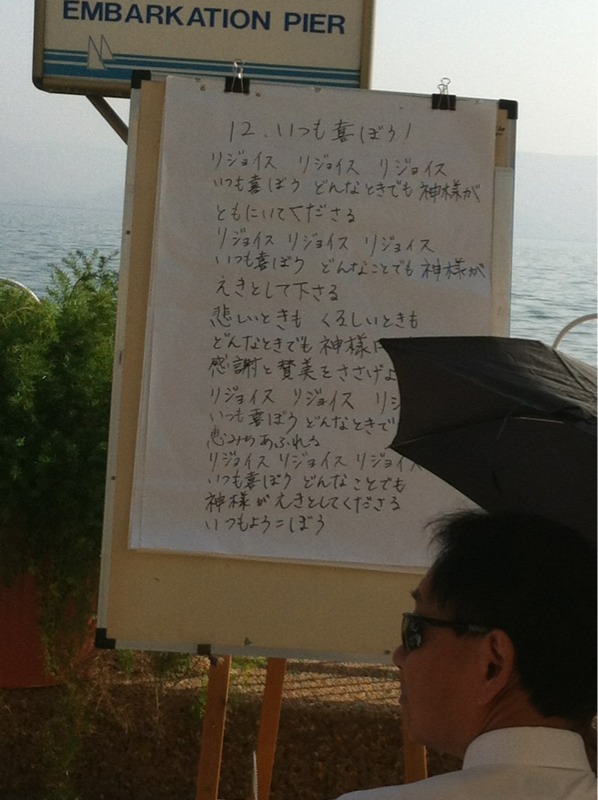 EMBARKATION PIER
12. いつも喜ぼう!
リジョイス リジョイス リジョイス
いつも喜ぼう どんなときでも 神様が
ともにいてくださる
リジョイス リジョイス リジョイス
いつも喜ぼう どんなことでも 神様が
えきとして下さる
悲しいときも くるしいときも
どんなときでも 神様に
感謝と賛美をささげよ
リジョイス リジョイス リジ
いつも喜ぼう どんなときで
恵みがあふれる
リジョイス リジョイス リジョイス
いつも喜ぼう どんなことでも
神様が えきとしてくださる
いつもよろこぼう